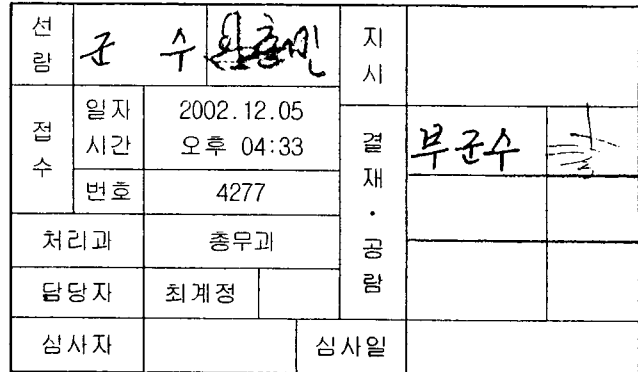 선람 군 수 지시
접수 일자 시간 2002.12.05 오후 04:33 결재·공람 부군수
번호 4277
처리과 총무과
담당자 최계정
심사자 심사일